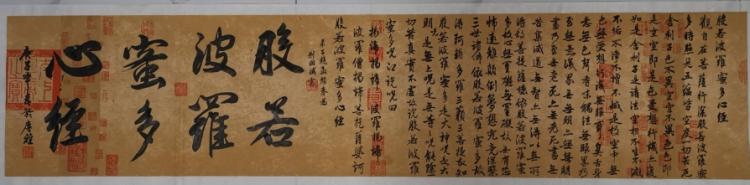 般若波羅蜜多心經
觀自在菩薩行深般若波羅蜜
多時照見五蘊皆空度一切苦厄
舍利子色不異空空不異色色即
是空空即是色受想行識亦復如
是舍利子是諸法空相不生不滅
不垢不淨不增不減是故空中無
色無受想行識無眼耳鼻舌身
意無色聲香味觸法無眼界乃
至無意識界無無明亦無無明
盡乃至無老死亦無老死盡無
苦集滅道無智亦無得以無所
得故菩提薩埵依般若波羅蜜
多故心無罣礙無罣礙故無有恐
怖遠離顛倒夢想究竟涅槃
三世諸佛依般若波羅蜜多故
得阿耨多羅三藐三菩提故知
般若波羅蜜多是大神咒是大
明咒是無上咒是無等等咒能除
一切苦真實不虛故說般若波羅
蜜多咒即說咒曰
揭諦揭諦 波羅揭諦
波羅僧揭諦菩提薩婆訶
般若波羅蜜多心經
般若
波羅
蜜多
心經